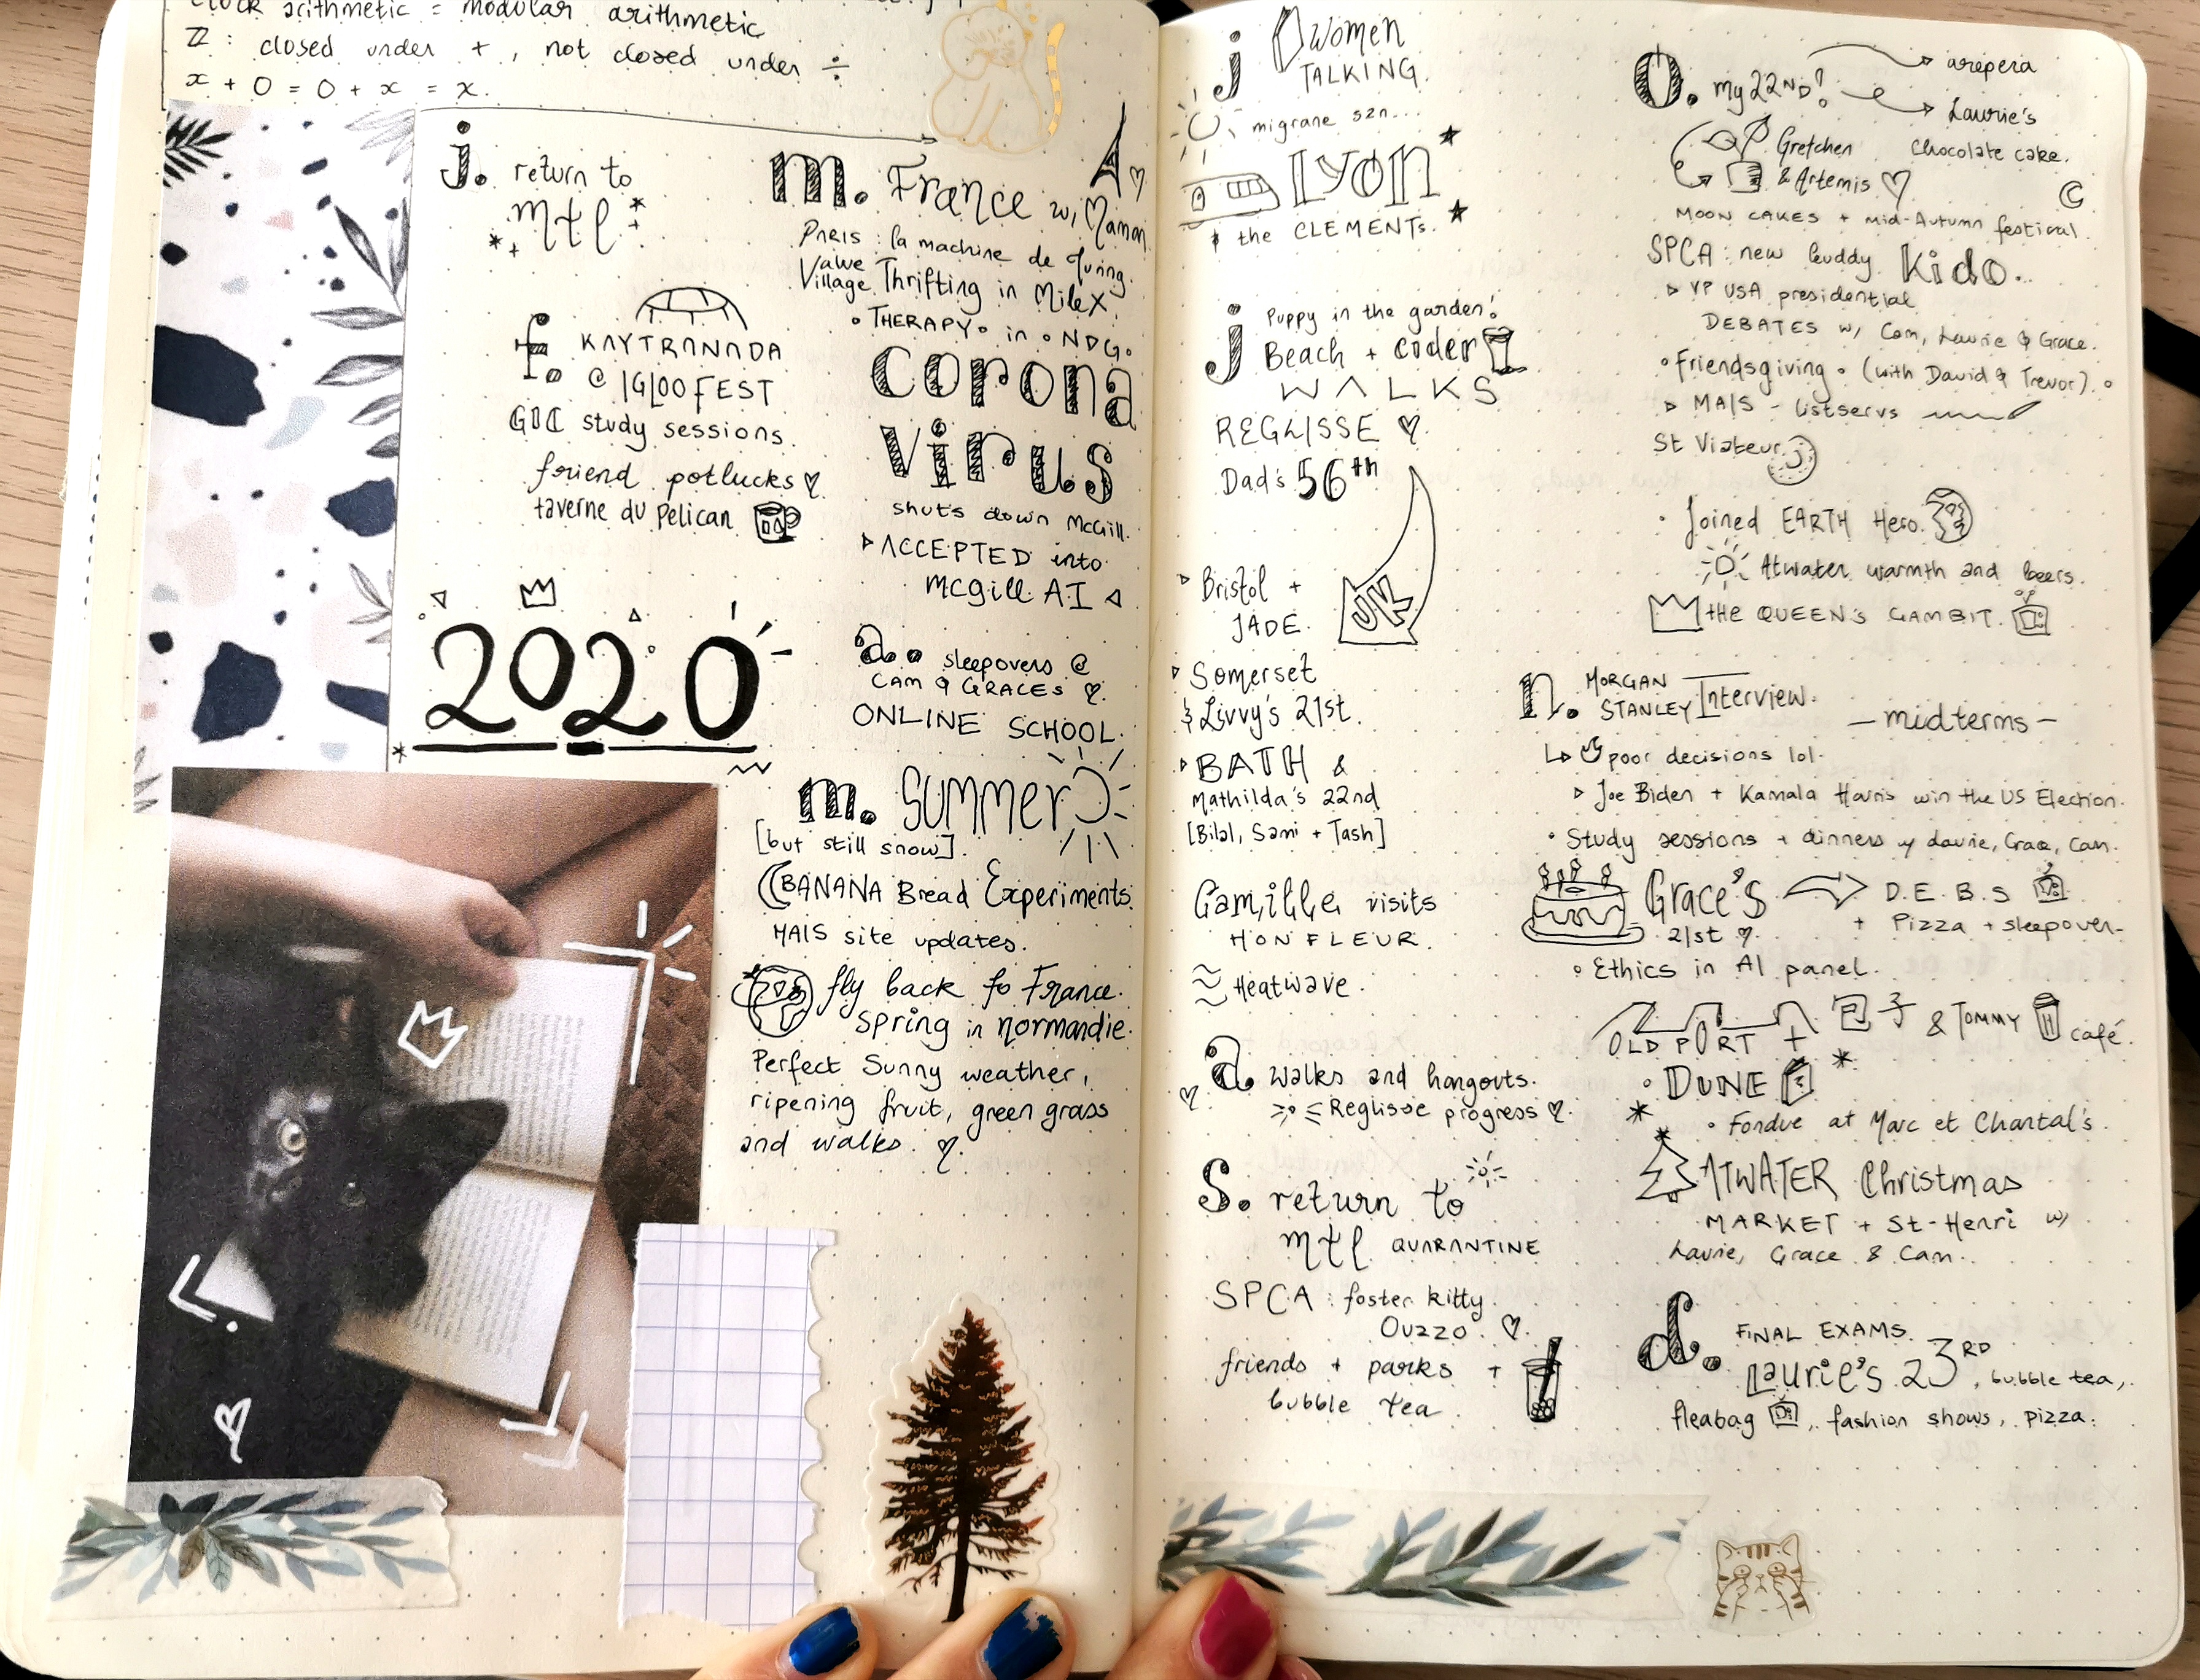 clock arithmetic = modular arithmetic
ℤ : closed under + , not closed under ÷
x + 0 = 0 + x = x.
j. return to
mtl
f. KAYTRANADA
@ IGLOOFEST
GIC study sessions.
friend potlucks ♡
taverne du Pelican
2020
m. France w/ Maman
PARIS : la machine de Turing.
Value Village Thrifting in MileX
• THERAPY • in • NDG •
corona
virus
shuts down McGill.
▹ ACCEPTED into
McGill AI ◃
a. sleepovers @
CAM & GRACES ♡.
ONLINE SCHOOL.
m. SUMMER
[but still snow].
BANANA Bread Experiments.
MAIS site updates.
fly back to France.
spring in normandie.
Perfect Sunny weather,
ripening fruit, green grass
and walks. ♡.
j women
TALKING.
migrane szn...
LYON
the CLEMENTs.
j Puppy in the garden!
Beach + cider
WALKS
REGLISSE ♡.
Dad's 56th
UK
▹ Bristol +
JADE.
▹ Somerset
& Livvy's 21st.
▹ BATH &
Mathilda's 22nd
[Bilal, Sami + Tash]
Camille visits
HONFLEUR.
Heatwave.
a. walks and hangouts.
Reglisse progress ♡.
s. return to
mtl QUARANTINE
SPCA : foster kitty
OUZZO. ♡.
friends + parks +
bubble tea.
O. my 22ND! → arepera
→ Laurie's
Chocolate cake.
Gretchen
& Artemis ♡
MOON CAKES + mid-Autumn festival.
SPCA : new buddy Kido..
▹ VP USA presidential
DEBATES w/ Cam, Laurie & Grace.
• Friendsgiving • (with David & Trevor). •
▹ MAIS - listservs
St Viateur
• Joined EARTH Hero.
Atwater warmth and beers.
the QUEEN'S GAMBIT.
n. MORGAN
STANLEY Interview.
— midterms —
poor decisions lol.
▹ Joe Biden + Kamala Harris win the US Election.
• Study sessions + dinners w/ Laurie, Grace, Cam.
Grace's → D.E.B.S
21st ♡. + Pizza + sleepover
• Ethics in AI panel.
OLD PORT + 包子 & TOMMY café.
• DUNE
• Fondue at Marc et Chantal's.
ATWATER Christmas
MARKET + St-Henri w/
Laurie, Grace & Cam.
d. FINAL EXAMS.
Laurie's 23RD, bubble tea,
fleabag, fashion shows, pizza.